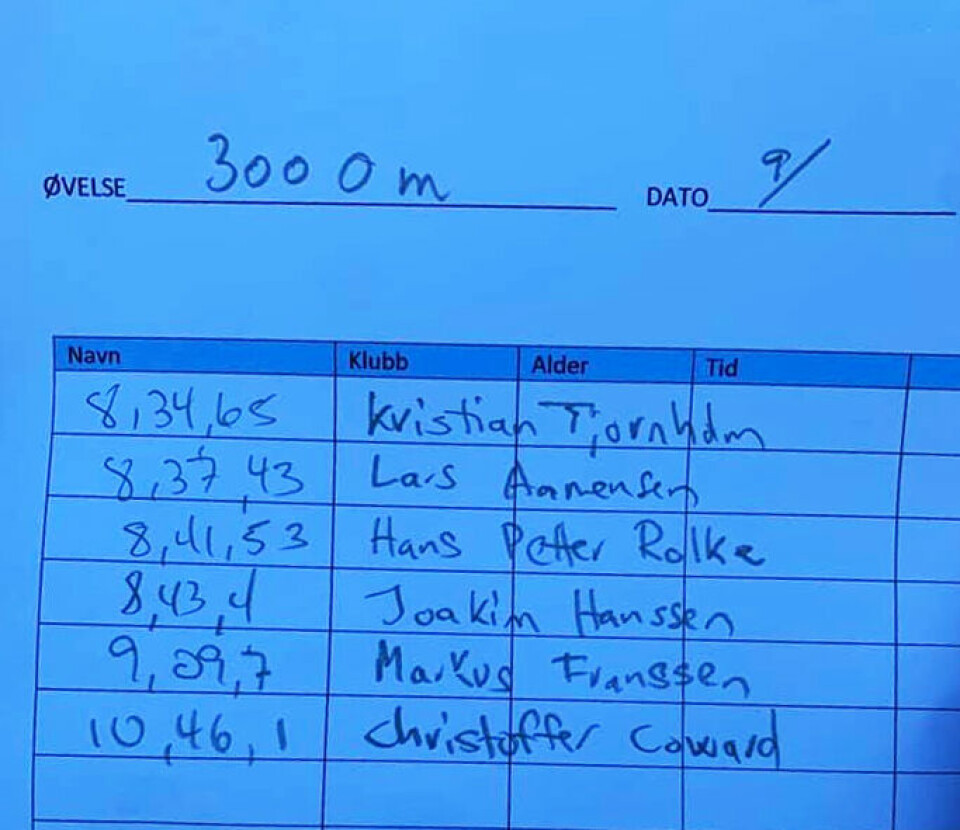 ØVELSE 3000 m DATO 9/
Navn Klubb Alder Tid
8,34,65 Kristian Tjørnhøm
8,37,43 Lars Aamensen
8,41,53 Hans Petter Rolke
8,43,4 Joakim Hanssen
9,09,7 Markus Franssen
10,46,1 Christoffer Coward